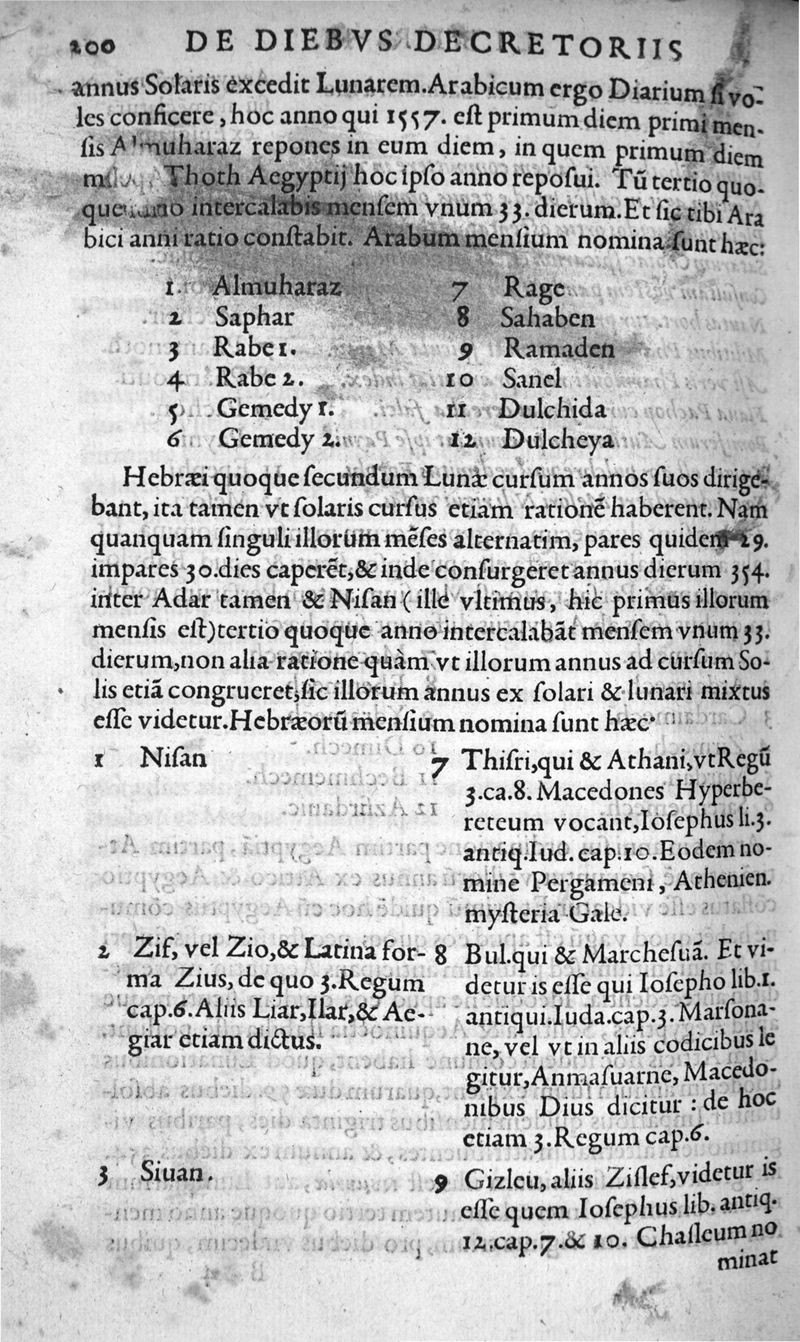 200 DE DIEBVS DECRETORIIS
annus Solaris excedit Lunarem. Arabicum ergo Diarium ſi vo-
les conficere, hoc anno qui 1557. eſt primum diem primi men-
ſis Almuharaz repones in eum diem, in quem primum diem
Thoth Aegyptij hoc ipſo anno repoſui. Tū tertio quo-
que anno intercalabis menſem vnum 33. dierum. Et ſic tibi Ara
bici anni ratio conſtabit. Arabum menſium nomina ſunt hæc:
1 Almuharaz 7 Rage
2 Saphar 8 Sahaben
3 Rabe 1. 9 Ramaden
4 Rabe 2. 10 Sanel
5 Gemedy 1. 11 Dulchida
6 Gemedy 2. 12 Dulcheya
Hebræi quoque ſecundum Lunæ curſum annos ſuos dirige-
bant, ita tamen vt ſolaris curſus etiam rationē haberent. Nam
quanquam ſinguli illorum mēſes alternatim, pares quidem 29.
impares 30. dies caperēt, & inde conſurgeret annus dierum 354.
inter Adar tamen & Niſan (ille vltimus, hic primus illorum
menſis eſt) tertio quoque anno intercalabāt menſem vnum 33.
dierum, non alia ratione quàm vt illorum annus ad curſum So-
lis etiā congrueret, ſic illorum annus ex ſolari & lunari mixtus
eſſe videtur. Hebræorū menſium nomina ſunt hæc.
1 Niſan
7 Thiſri, qui & Athani, vt Regū
3. ca. 8. Macedones Hyperbe-
reteum vocant, Ioſephus li. 3.
antiq. Iud. cap. 10. Eodem no-
mine Pergameni, Athenien.
myſteria Gale.
2 Zif, vel Zio, & Latina for-
ma Zius, de quo 3. Regum
cap. 6. Aliis Liar, Ilar, & Ae-
giar etiam dictus.
8 Bul. qui & Marcheſuā. Et vi-
detur is eſſe qui Ioſepho lib. 1.
antiqui. Iuda. cap. 3. Marſona-
ne, vel vt in aliis codicibus le
gitur, Anmaſuarne, Macedo-
nibus Dius dicitur : de hoc
etiam 3. Regum cap. 6.
3 Siuan.
9 Gizleu, aliis Ziſlef, videtur is
eſſe quem Ioſephus lib. antiq.
12. cap. 7. & 10. Chaſleum no
minat